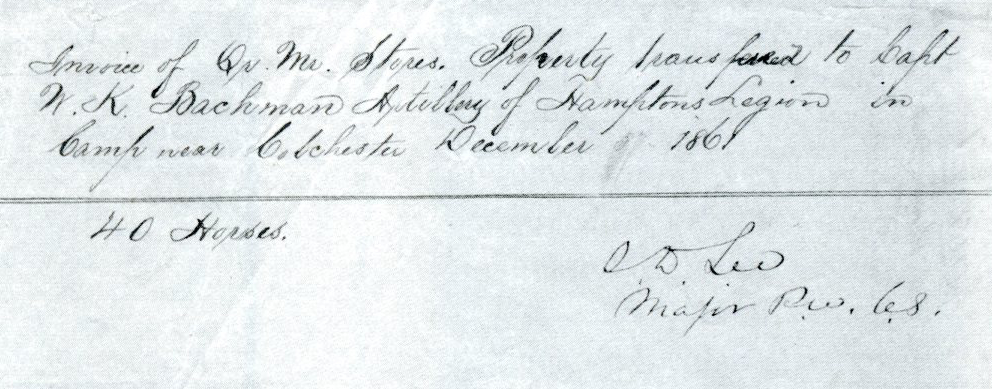 Invoice of Qr. Mr. Stores. Property transfered to Capt
W. K. Bachman Artillery of Hamptons Legion in
Camp near Colchester December 1861
40 Horses.
S D Lee
Major C.S.